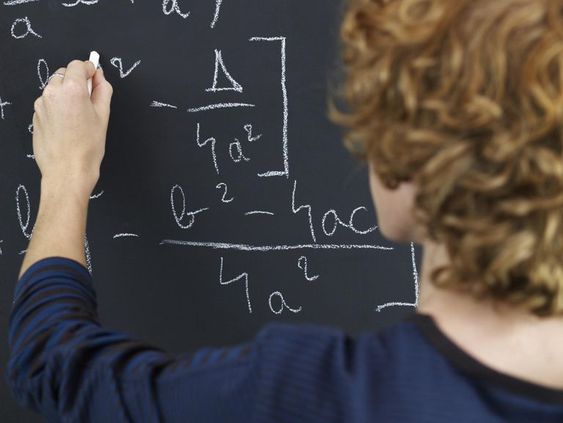 a a /
b² - Δ/4a² ]
b - (b² - 4ac)/4a² ]